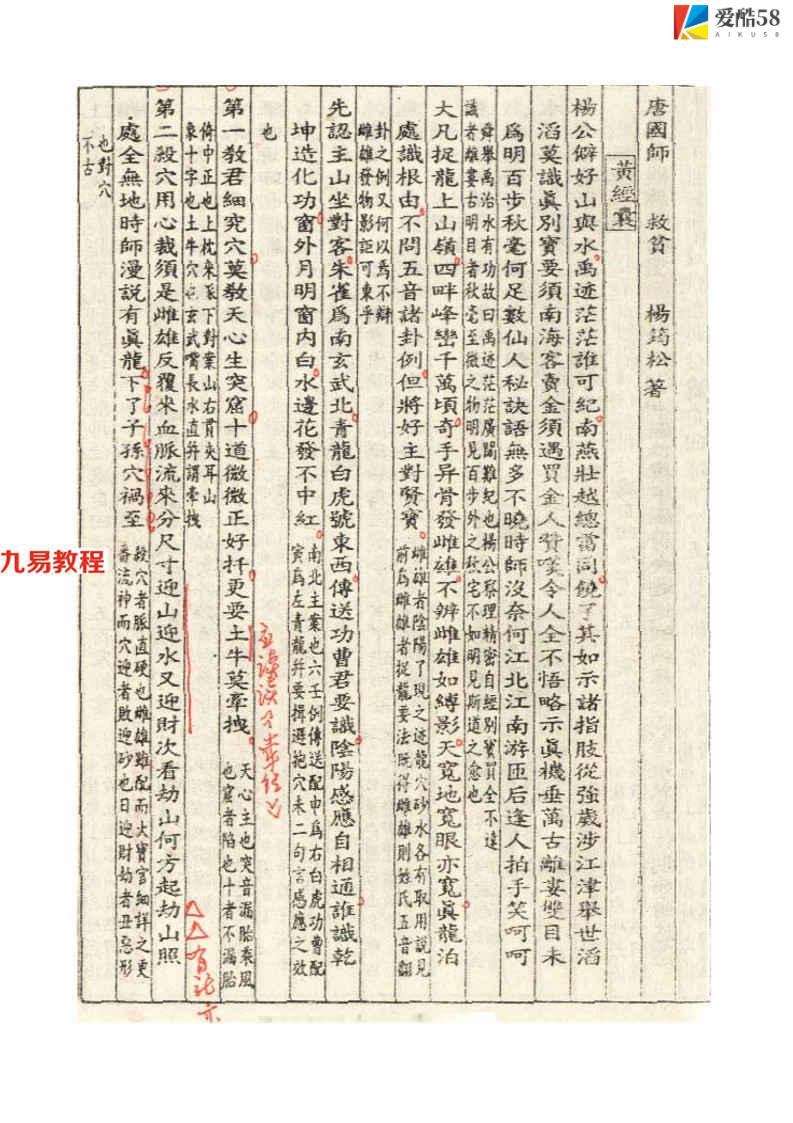 爱酷58
AIKU58
唐國師 救貧 楊筠松著
黃經囊
楊公僻好山與水禹迹茫茫誰可紀南燕壯越總當同饒了其如示諸指肢從強歲涉江津舉世滔
滔莫識眞別寶要須南海客賣金須遇買金人贊嘆令人全不悟略示眞機垂萬古離婁雙目未
爲明百步秋毫何足數仙人秘訣語無多不曉時師沒奈何江北江南游匝后逢人拍手笑呵呵
舜舉禹治水有功故曰禹迹茫茫廣闊難紀也楊公察理精密自經別寶買全不遠
識者離婁古明目者秋毫至微之物明見百步外之秋宅不如明見斯道之愈也
大凡捉龍上山嶺四畔峰巒千萬頃奇手异骨發雌雄不辨雌雄如縛影天寬地寬眼亦寬眞龍泊
處識根由不問五音諸卦例但將好主對賢賓
雌雄者陰陽了現之迹龍穴砂水各有取用說見
前爲雌雄者捉龍要法既得雌雄則姓氏五音翻
卦之例又何以爲不辯
雌雄發物影詎可東乎
先認主山坐對客朱雀爲南玄武北青龍白虎號東西傳送功曹君要識陰陽感應自相通誰識乾
坤造化功窗外月明窗内白水邊花發不中紅
南北主案也六壬例傳送配申爲右白虎功曹配
寅爲左青龍并要揖遜抱穴未二句言感應之效
也
第一教君細究穴莫教天心生突窟十道微微正好扦更要土牛莫牽拽
天心主也突音漏胎乘風
也窟者陷也十者不漏胎
倚中正也上枕來脉下對案山右貫夾耳山
象十字也土牛穴也玄武嘴長水直并謂牽拽
第二殺穴用心裁須是雌雄反覆來血脈流來分尺寸迎山迎水又迎財次看劫山何方起劫山照
處全無地時師漫説有眞龍下了子孫穴禍至
殺穴者脈直硬也雌雄雖配而大寶官細詳之更
番流神而穴迎者敗迎砂也曰迎財劫者丑惡形
也對穴
不古
九易教程